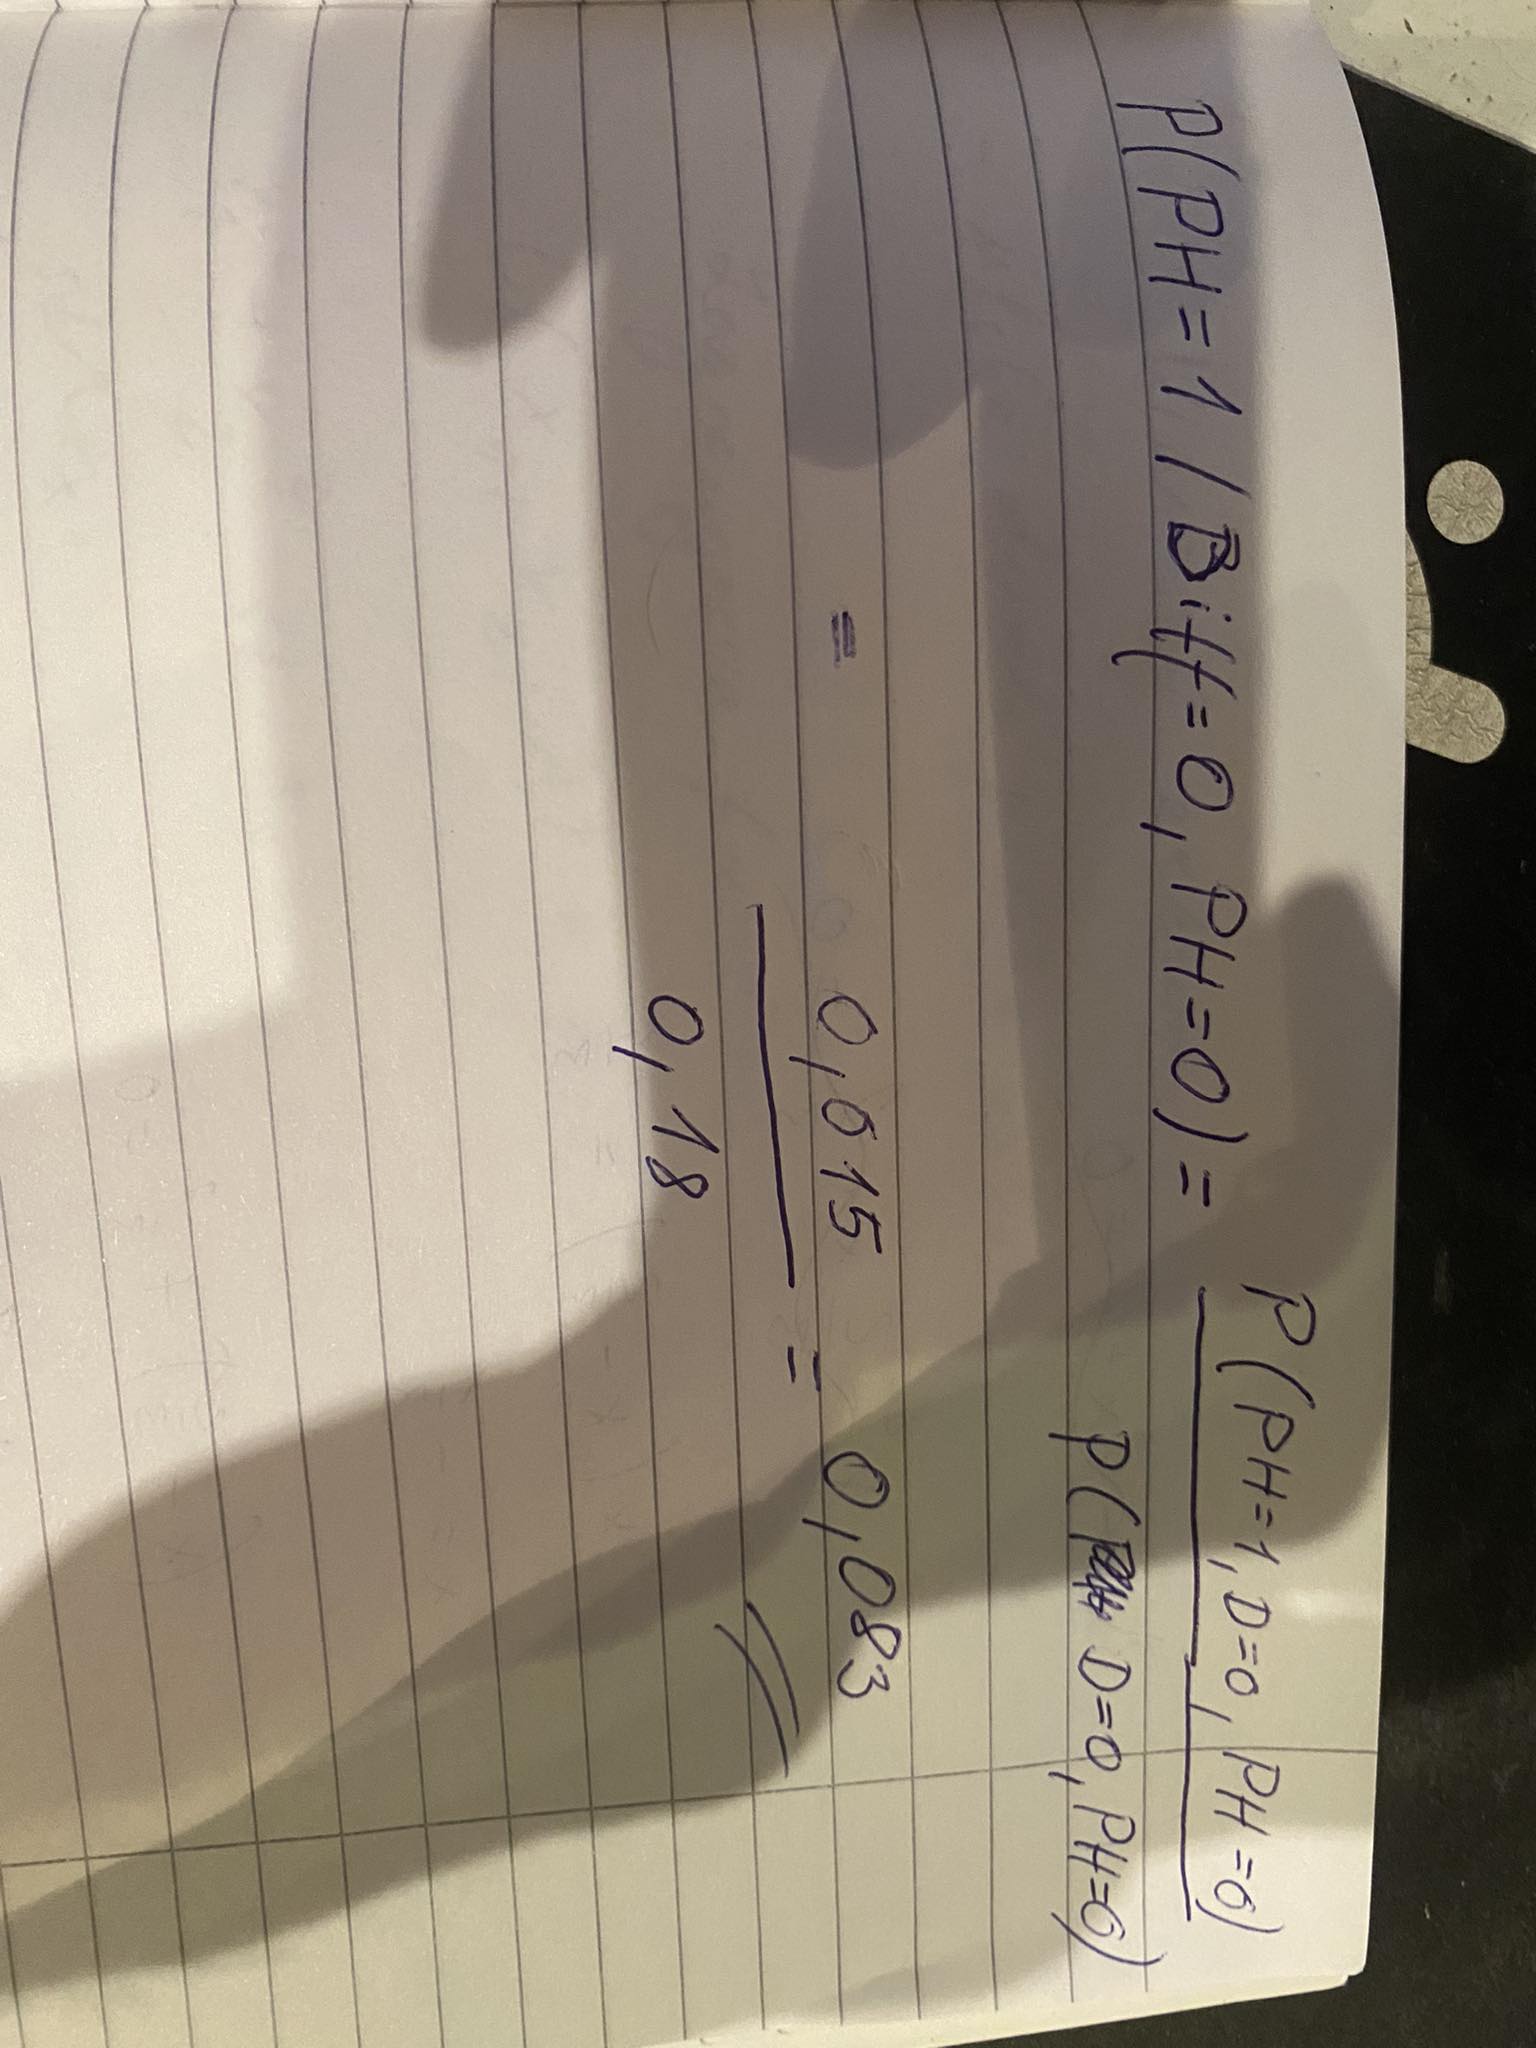 P(PH=1 / Diff=0, PH=0) = P(PH=1, D=0, PH=0)
P( D=0, PH=0)
= 0,015 = 0,083
0,18